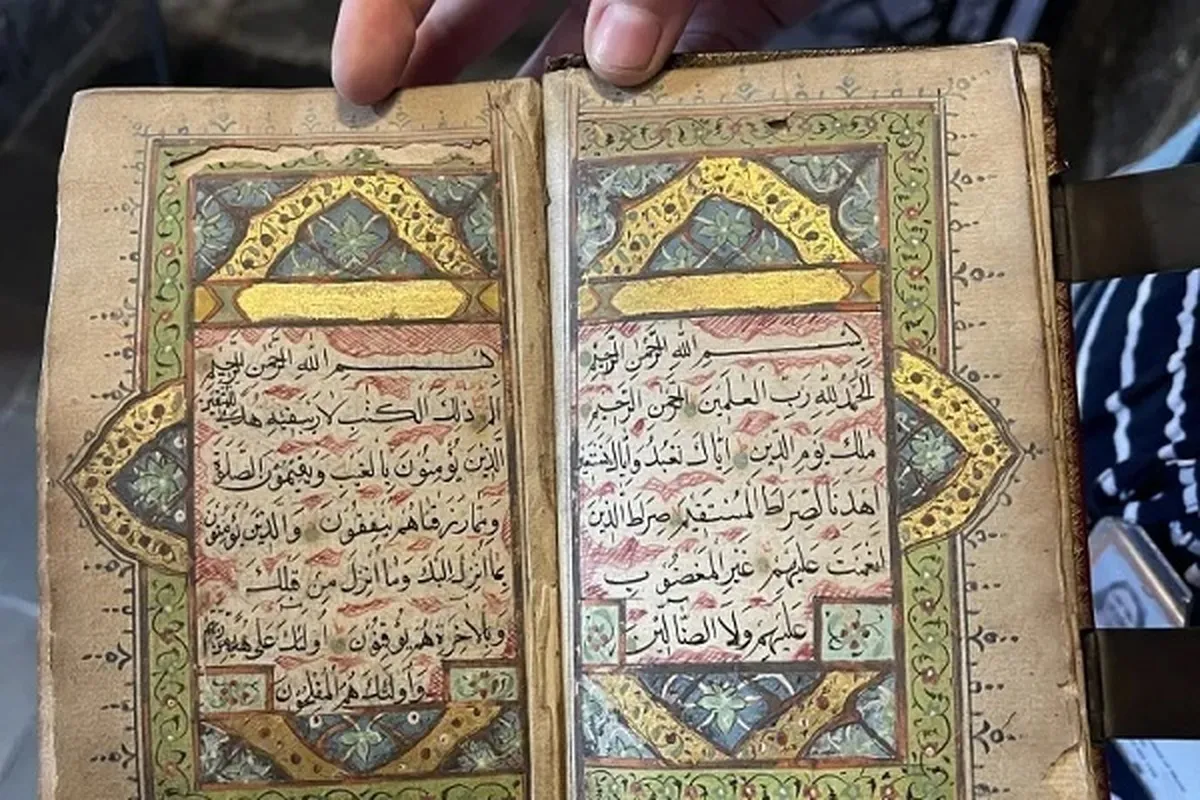 بسم الله الرحمن الرحيم
الحمد لله رب العلمين الرحمن الرحيم
ملك يوم الدين اياك نعبد واياك نستعين
اهدنا الصراط المستقيم صراط الذين
انعمت عليهم غير المغضوب
عليهم ولا الضالين
بسم الله الرحمن الرحيم
الم ذلك الكتب لا ريب فيه هدى للمتقين
الذين يؤمنون بالغيب ويقيمون الصلوة
ومما رزقناهم ينفقون والذين يؤمنون
بما انزل اليك وما انزل من قبلك
وبالاخرة هم يوقنون اولئك على هدى من ربهم
واولئك هم المفلحون